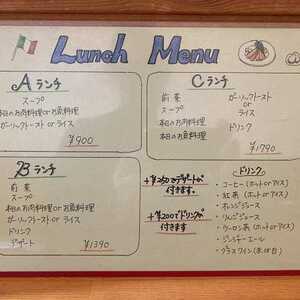 Lunch Menu
Aランチ
スープ
本日のお肉料理orお魚料理
ガーリックトースト or ライス
¥900
Bランチ
前菜
スープ
本日のお肉料理orお魚料理
ガーリックトースト or ライス
ドリンク
デザート
¥1390
Cランチ
前菜
スープ
本日のお肉料理
お魚料理
ガーリックトースト
or
ライス
ドリンク
¥1790
デザートが
付きます。
+¥200でドリンクが
付きます。
ドリンク
・コーヒー(ホットorアイス)
・紅茶(ホットorアイス)
・オレンジジュース
・りんごジュース
・ウーロン茶(ホットorアイス)
・ジンジャーエール
・グラスワイン(赤or白)